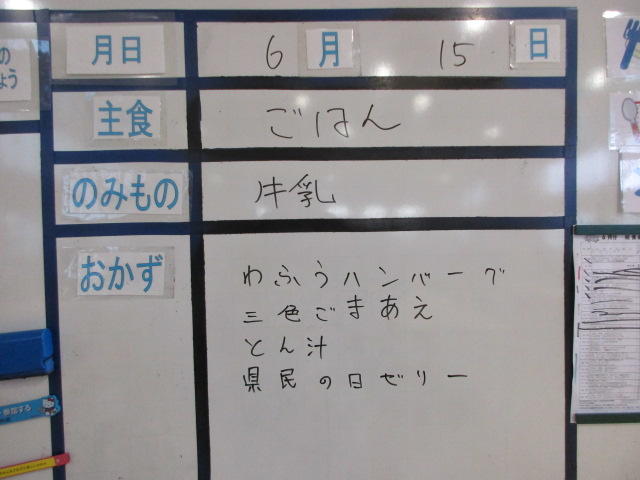 月日 6 月 15 日
主食 ごはん
のみもの 牛乳
おかず
わふうハンバーグ
三色ごまあえ
とん汁
県民の日ゼリー